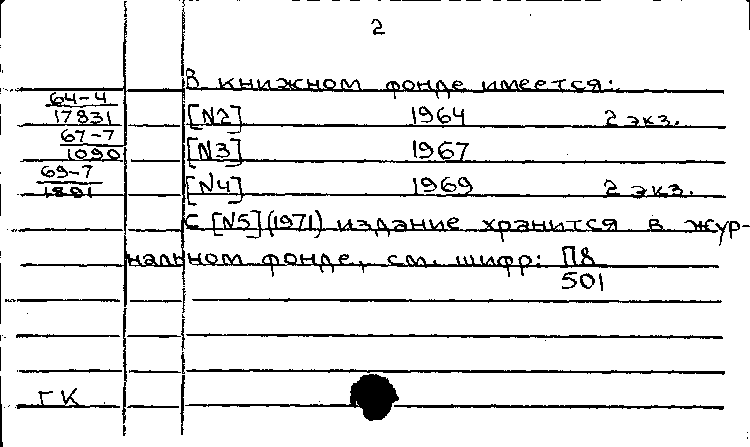 2
В книжном фонде имеется:
64-4
17831 [N2] 1964 2 экз.
67-7
1090 [N3] 1967
69-7
1891 [N4] 1969 2 экз.
С [N5] (1971) издание хранится в жур-
нальном фонде, см. шифр: П8
501
ГК